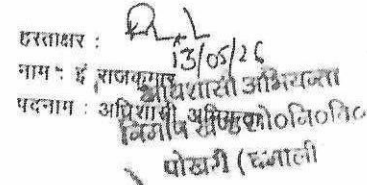 हस्ताक्षर :
13/05/26
नाम : इं राजकुमार
अधिशासी अभियन्ता
पदनाम : अधिशासी अभियन्ता
निर्माण खण्ड लो०नि०वि०
पोखरी (चमोली